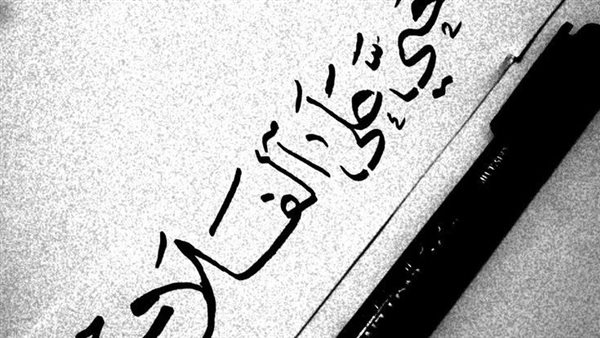 حَيَّ عَلَى ٱلفَلَاح